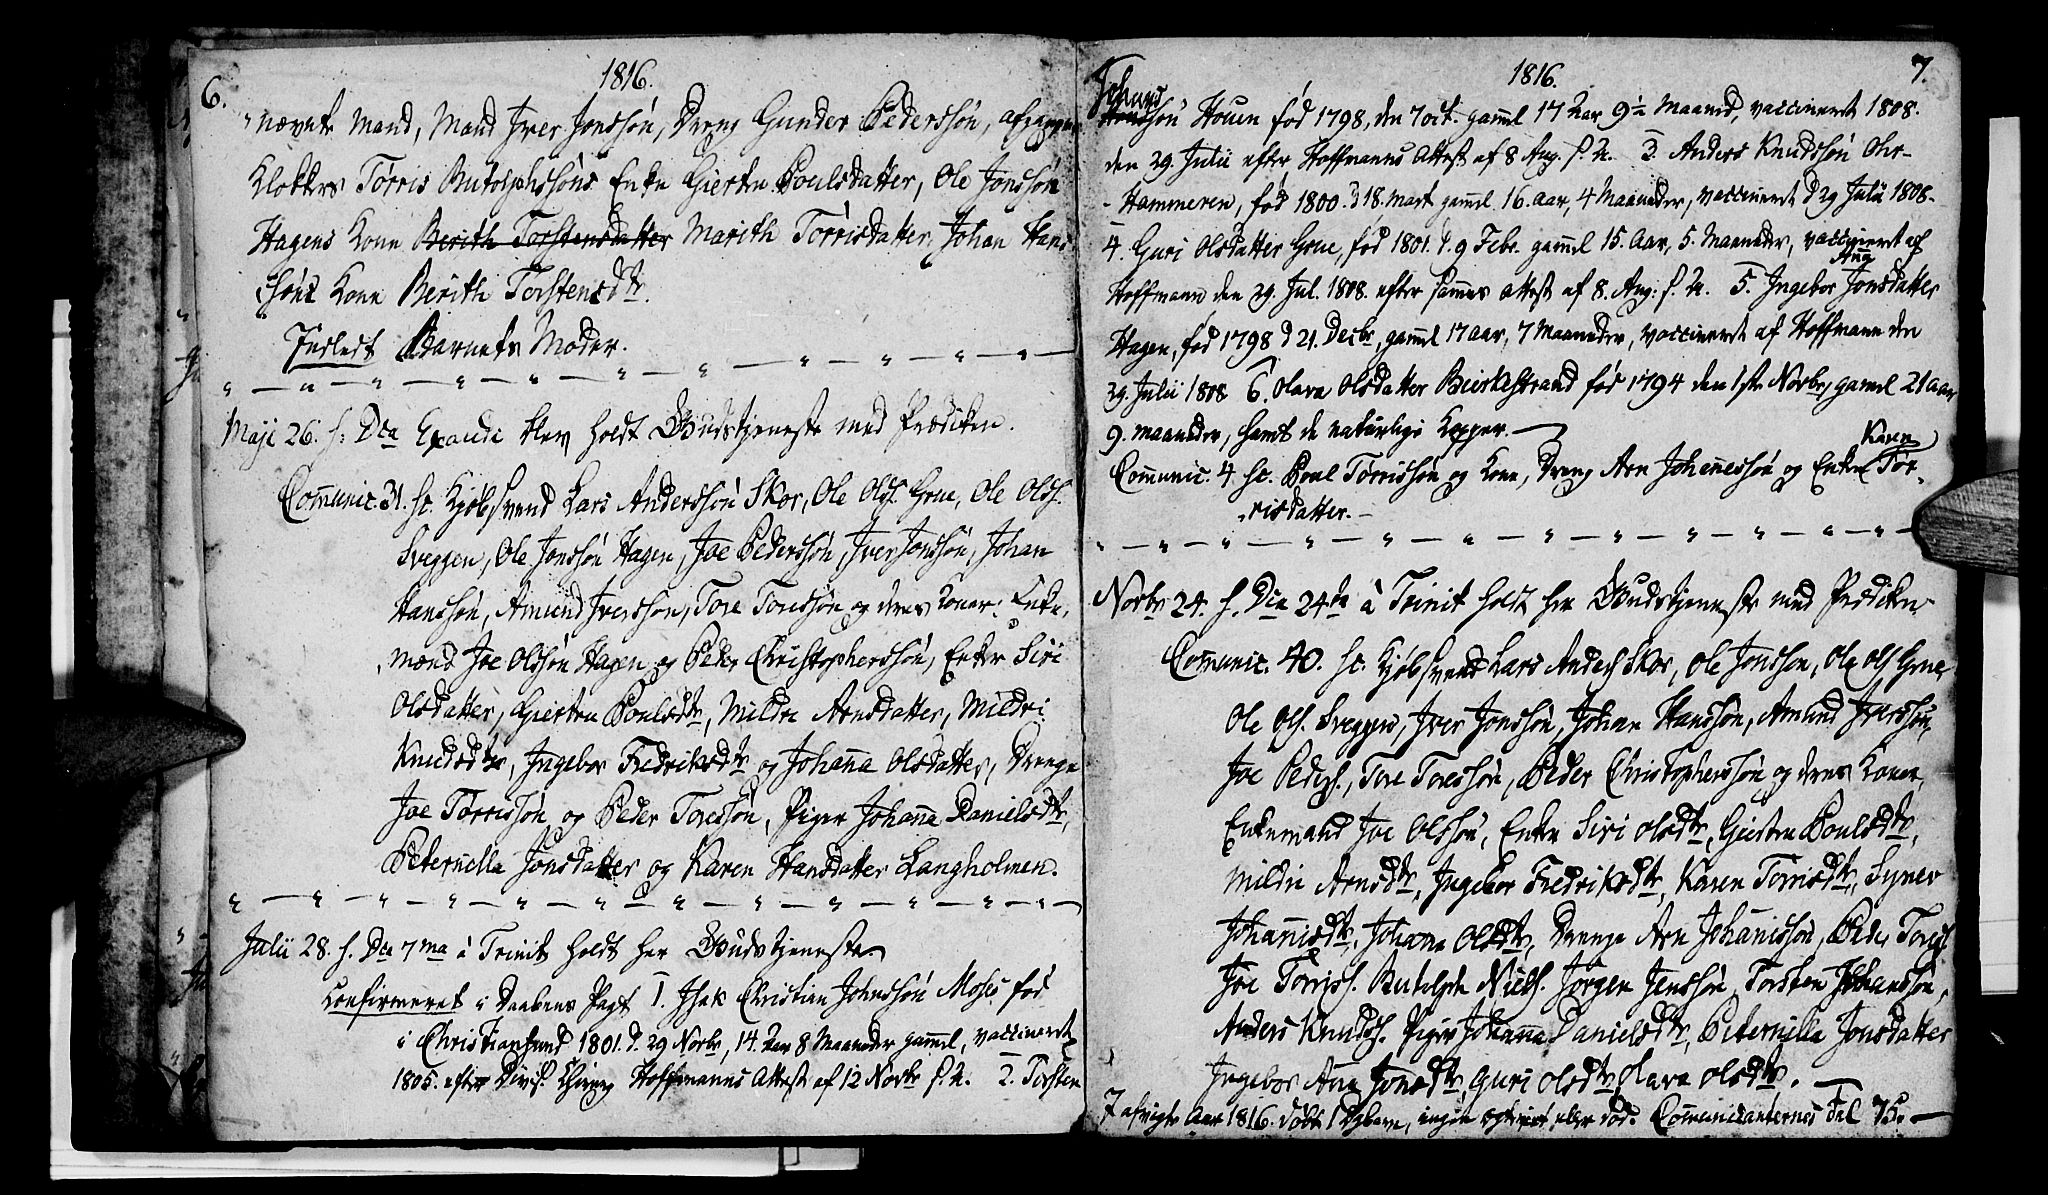 6. 1816.
nævnte Mand, Mand Iver Jonssøn, Dreng Gunder Pederssøn, afgangne
Klokkers Tørris Butolphssøns Enke Giertru Poulsdatter, Ole Jonssøn
Hagens Kone Berith Torstensdatter Marith Tørrisdatter, Johan Hans-
søns Kone Berith Torstensdtr.
Indledt Barnets Moder.
Maji 26. h: Dca Exaudi blev holdt Gudstjeneste med Prædiken.
Communic. 31. sc. Kjøbsvend Lars Anderssøn Skor, Ole Olss. Grue, Ole Olss.
Sveggen, Ole Jonssøn Hagen, Joe Pederssøn, Iver Jonssøn, Johan
Hanssøn, Amund Iverssøn, Tore Toressøn og deres Koner. Enke-
mænd Joe Olssøn Hagen og Peder Christopherssøn, Enker Siri
Olsdatter, Giertru Poulsdtr, Mildri Arnsdatter, Mildri
Knudsdtr, Ingebor Fredriksdtr og Johanna Olsdatter, Drenge
Joe Tørrissøn og Peder Toressøn, Piger Johanna Danielsdtr,
Peternella Jonsdatter og Karen Hansdatter Langholmen.
Julii 28. h. Dca 7ma à Trinit holdt her Gudstjeneste
Confirmeret i Daabens Pagt 1. Isak Christian Johnssøn Moses fød
i Christiansund 1801. d. 29 Novbr, 14. Aar 8 Maaneder gammel, vaccineret
1805. efter Divis. Chirurg Hoffmanns Attest af 12 Novbr s. A. 2. Torsten
1816. 7.
Johans
ssøn Houen fød 1798, den 7 oct. gaml 17 Aar 9½ Maaned, vaccineret 1808.
den 29. Julii efter Hoffmanns Attest af 8 Aug. s. A. 3. Anders Knudssøn Ohr-
-Hammeren, fød 1800. d 18. mart gaml. 16. aar, 4 Maaneder, vaccineret d 29 Julii 1808.
4. Guri Olsdatter Grue, fød 1801. d. 9 Febr. gaml 15. Aar, 5. Maaneder, vaccineret af
Hoffmann den 29. Jul. 1808. efter sammes attest af 8. Aug: s. A. 5. Ingebor Ana Jonsdatter
Hagen, fød 1798 d 21. Decbr, gaml 17 aar, 7 Maaneder, vaccineret af Hoffmann den
29. Julii 1808 6. Olava Olsdatter Bierkestrand fød 1794 den 1ste Novbr, gaml 21 aar
9. maaneder, havt de naturlige Kopper.
Communic. 4. sc. Poul Tørrissøn og Kone, Dreng Arn Johannessøn og Enken Karen Tør-
risdatter.
Novbr 24. h. Dca 24de à Trinit holdt her Gudstjeneste med Prædiken
Communic. 40. sc. Kjøbsvend Lars Anderss Skor, Ole Jonssøn, Ole Ols Grue,
Ole Ols. Sveggen, Iver Jonssøn, Johan Hanssøn, Amund Iverssøn,
Joe Peders., Tore Toressøn, Peder Christopherssøn og deres Koner,
Enkemand Joe Olssøn, Enker Siri Olsdtr, Giertru Poulsdtr,
Mildri Arnsdtr, Ingebor Fredriksdtr, Karen Tørrisdtr, Synev
Johannisdtr, Johana Olsdtr, Drenge Arn Johannissøn, Peder Toress.
Joe Tørriss. Butolph Niels. Jørgen Jenssøn, Torsten Johanssøn,
Anders Knudss. Piger Johanna Danielsdtr, Peternella Jonsdatter
Ingebor Ana Jonsdtr, Guri Olsdtr, Olava Olsdtr.
I afvigte Aar 1816. døbt 1 Pigebarn, ingen copuleret, eller død. Communicanternes Tal 75.